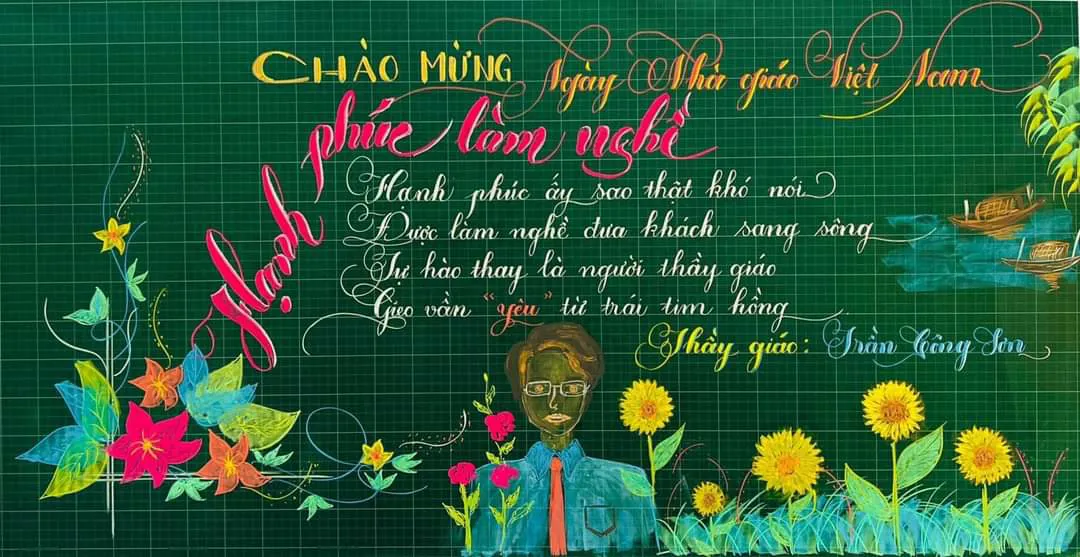 CHÀO MỪNG Ngày Nhà giáo Việt Nam
Hạnh phúc làm nghề
Hạnh phúc ấy sao thật khó nói
Được làm nghề đưa khách sang sông
Tự hào thay là người thầy giáo
Gieo vần "yêu" từ trái tim hồng
Thầy giáo: Trần Công Sơn